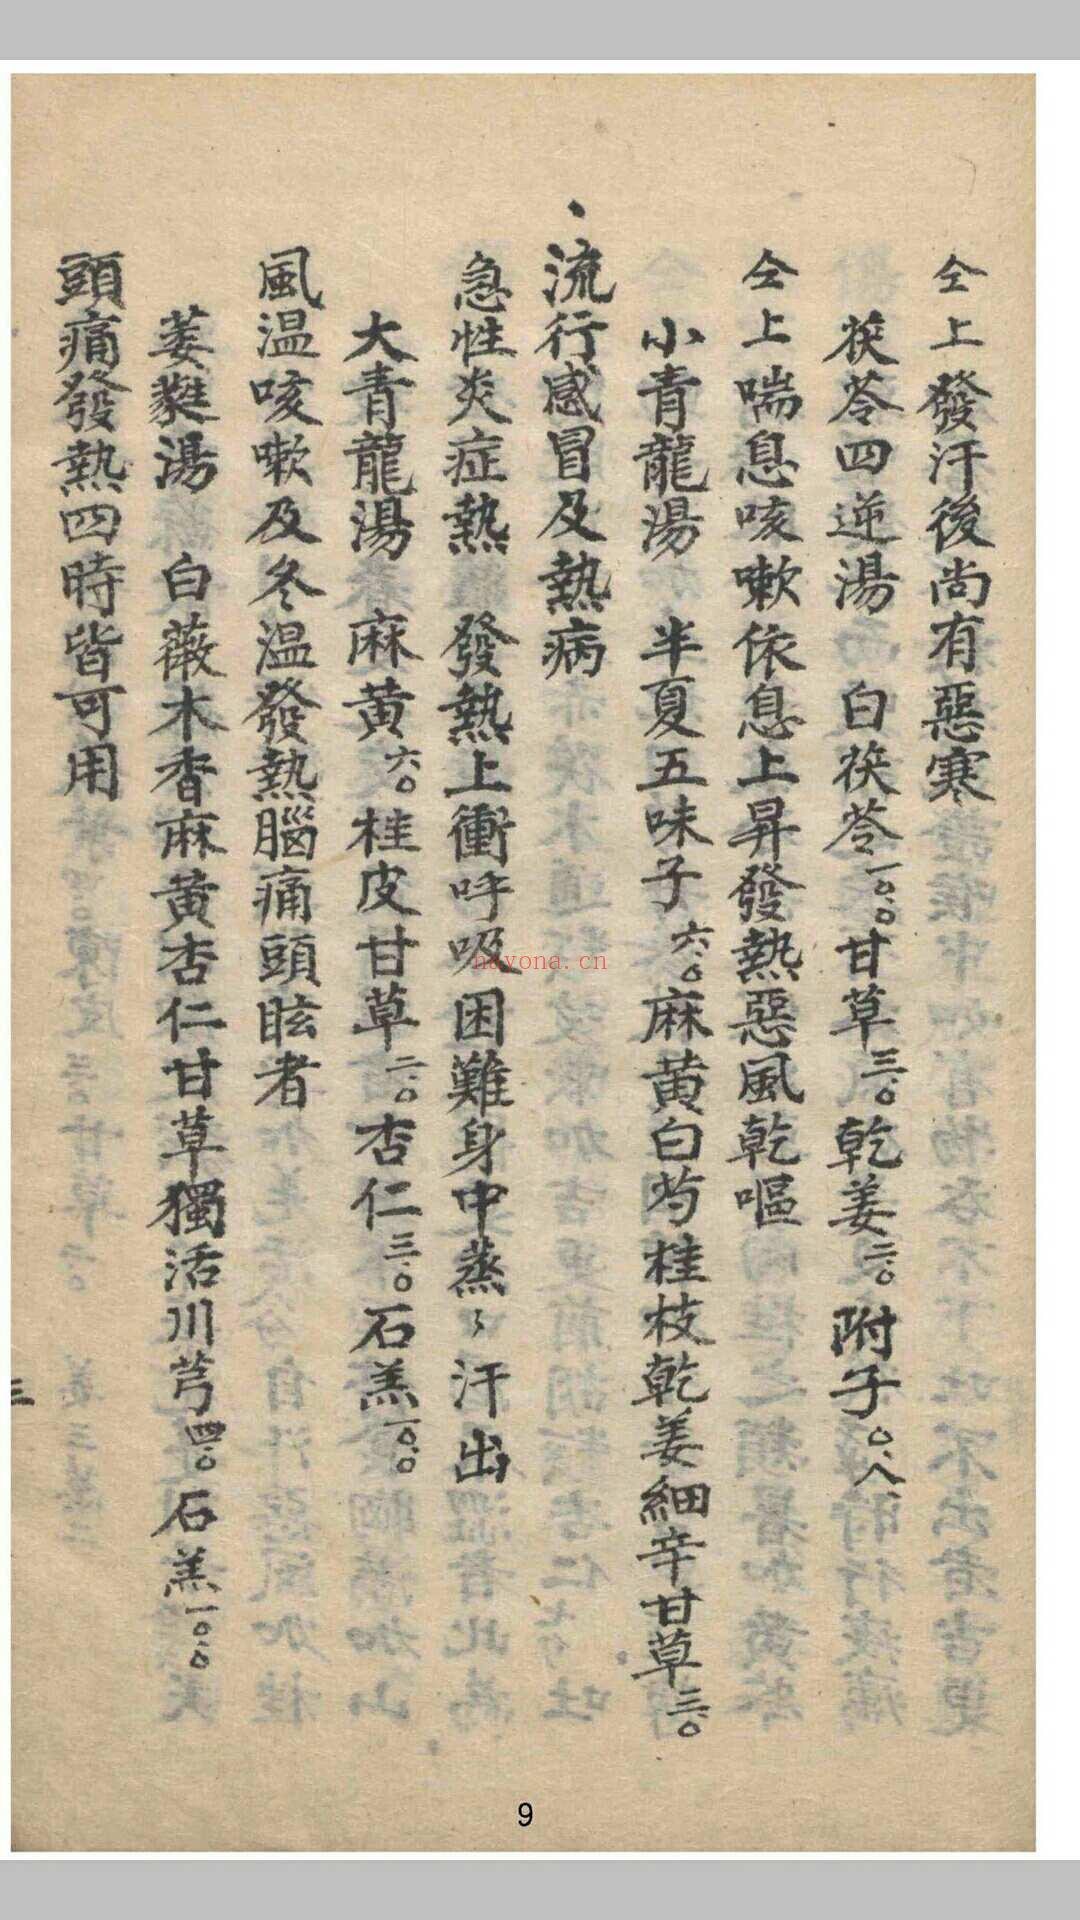 仝上發汗後尚有惡寒
茯苓四逆湯　白茯苓一〇.〇甘草三.〇乾姜二.〇附子〇.八
仝上喘息咳嗽依息上昇發熱惡風乾嘔
小青龍湯　半夏五味子六.〇麻黄白芍桂枝乾姜細辛甘草三.〇
、流行感冒及熱病
急性炎症熱　發熱上衝呼吸困難身中蒸〻汗出
大青龍湯　麻黄六.〇桂皮甘草二.〇杏仁三.〇石羔一〇.〇
風温咳嗽及冬温發熱腦痛頭眩者
萎蕤湯　白薇木香麻黄杏仁甘草獨活川芎四.〇石羔一〇.〇
頭痛發熱四時皆可用
三
nayona.cn
9